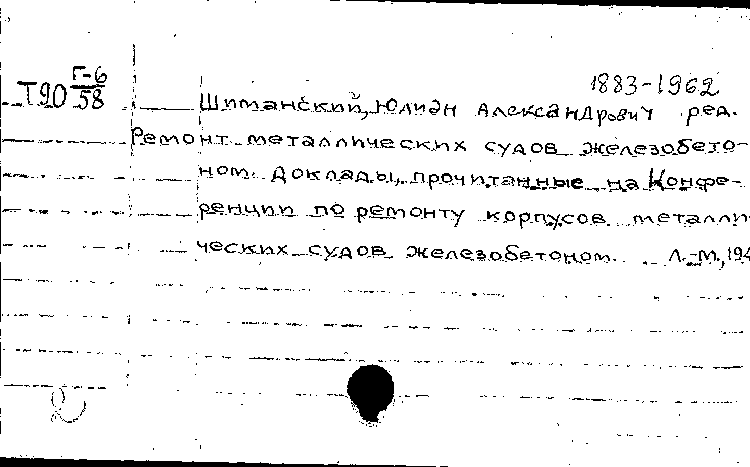 Г-6
Т90 58
1883-1962
Шиманский, Юлиан Александрович ред.
Ремонт металлических судов железобето-
ном. Доклады, прочитанные на Конфе-
ренции по ремонту корпусов металли
ческих судов железобетоном. Л.-М., 194
2